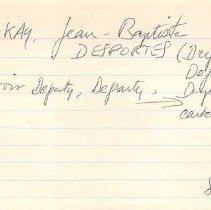 KAY, Jean-Baptiste
DESPORTES (Dry
De
voir Deputy, Departy.
Day
carde